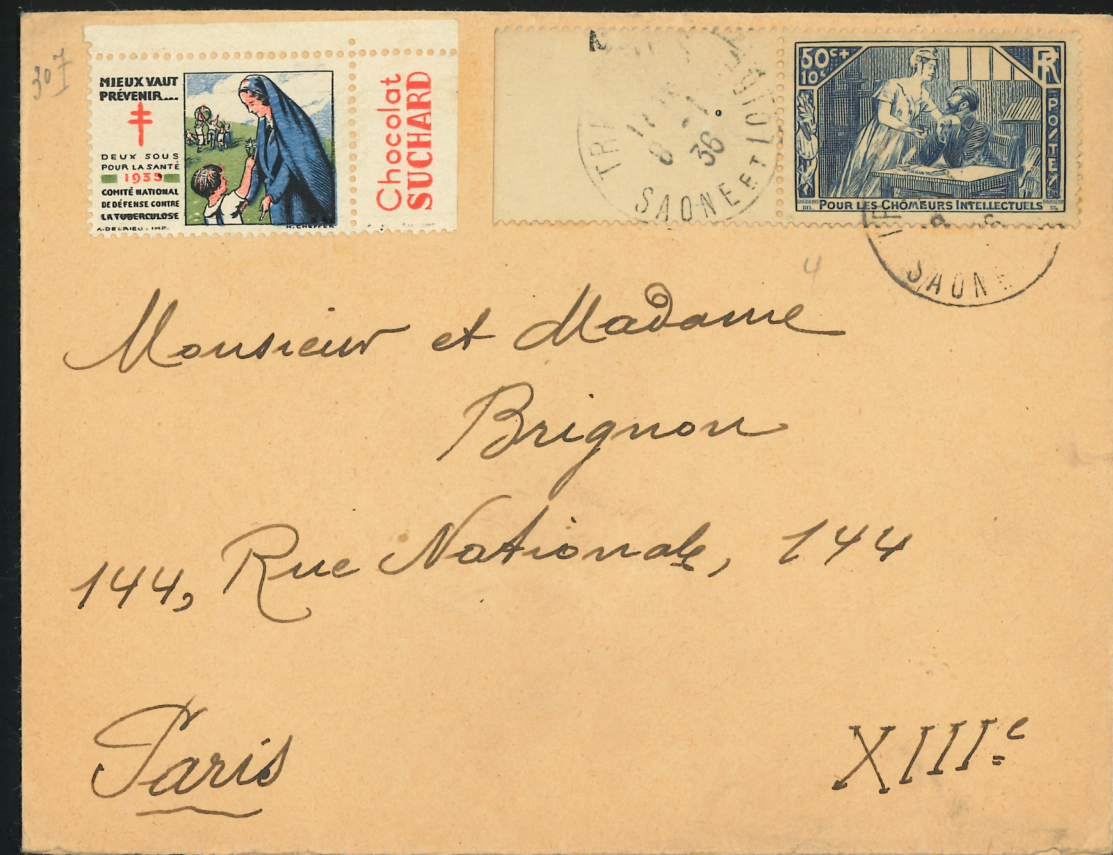 307
MIEUX VAUT
PRÉVENIR....
DEUX SOUS
POUR LA SANTÉ
1935
COMITÉ NATIONAL
DE DÉFENSE CONTRE
LA TUBERCULOSE
A. DELRIEU. IMP.
H. CHEFFER
Chocolat
SUCHARD
8 -1
36
SAONE ET
50c+
10c
RF
POSTE
POUR LES CHÔMEURS INTELLECTUELS
SAONE
4
Monsieur et Madame
Brignon
144, Rue Nationale, 144
Paris
XIIIe